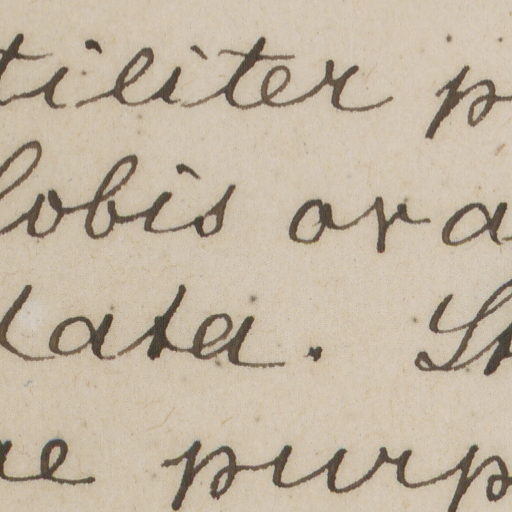 tiliter p
lobis ova
lata. St
ae purp